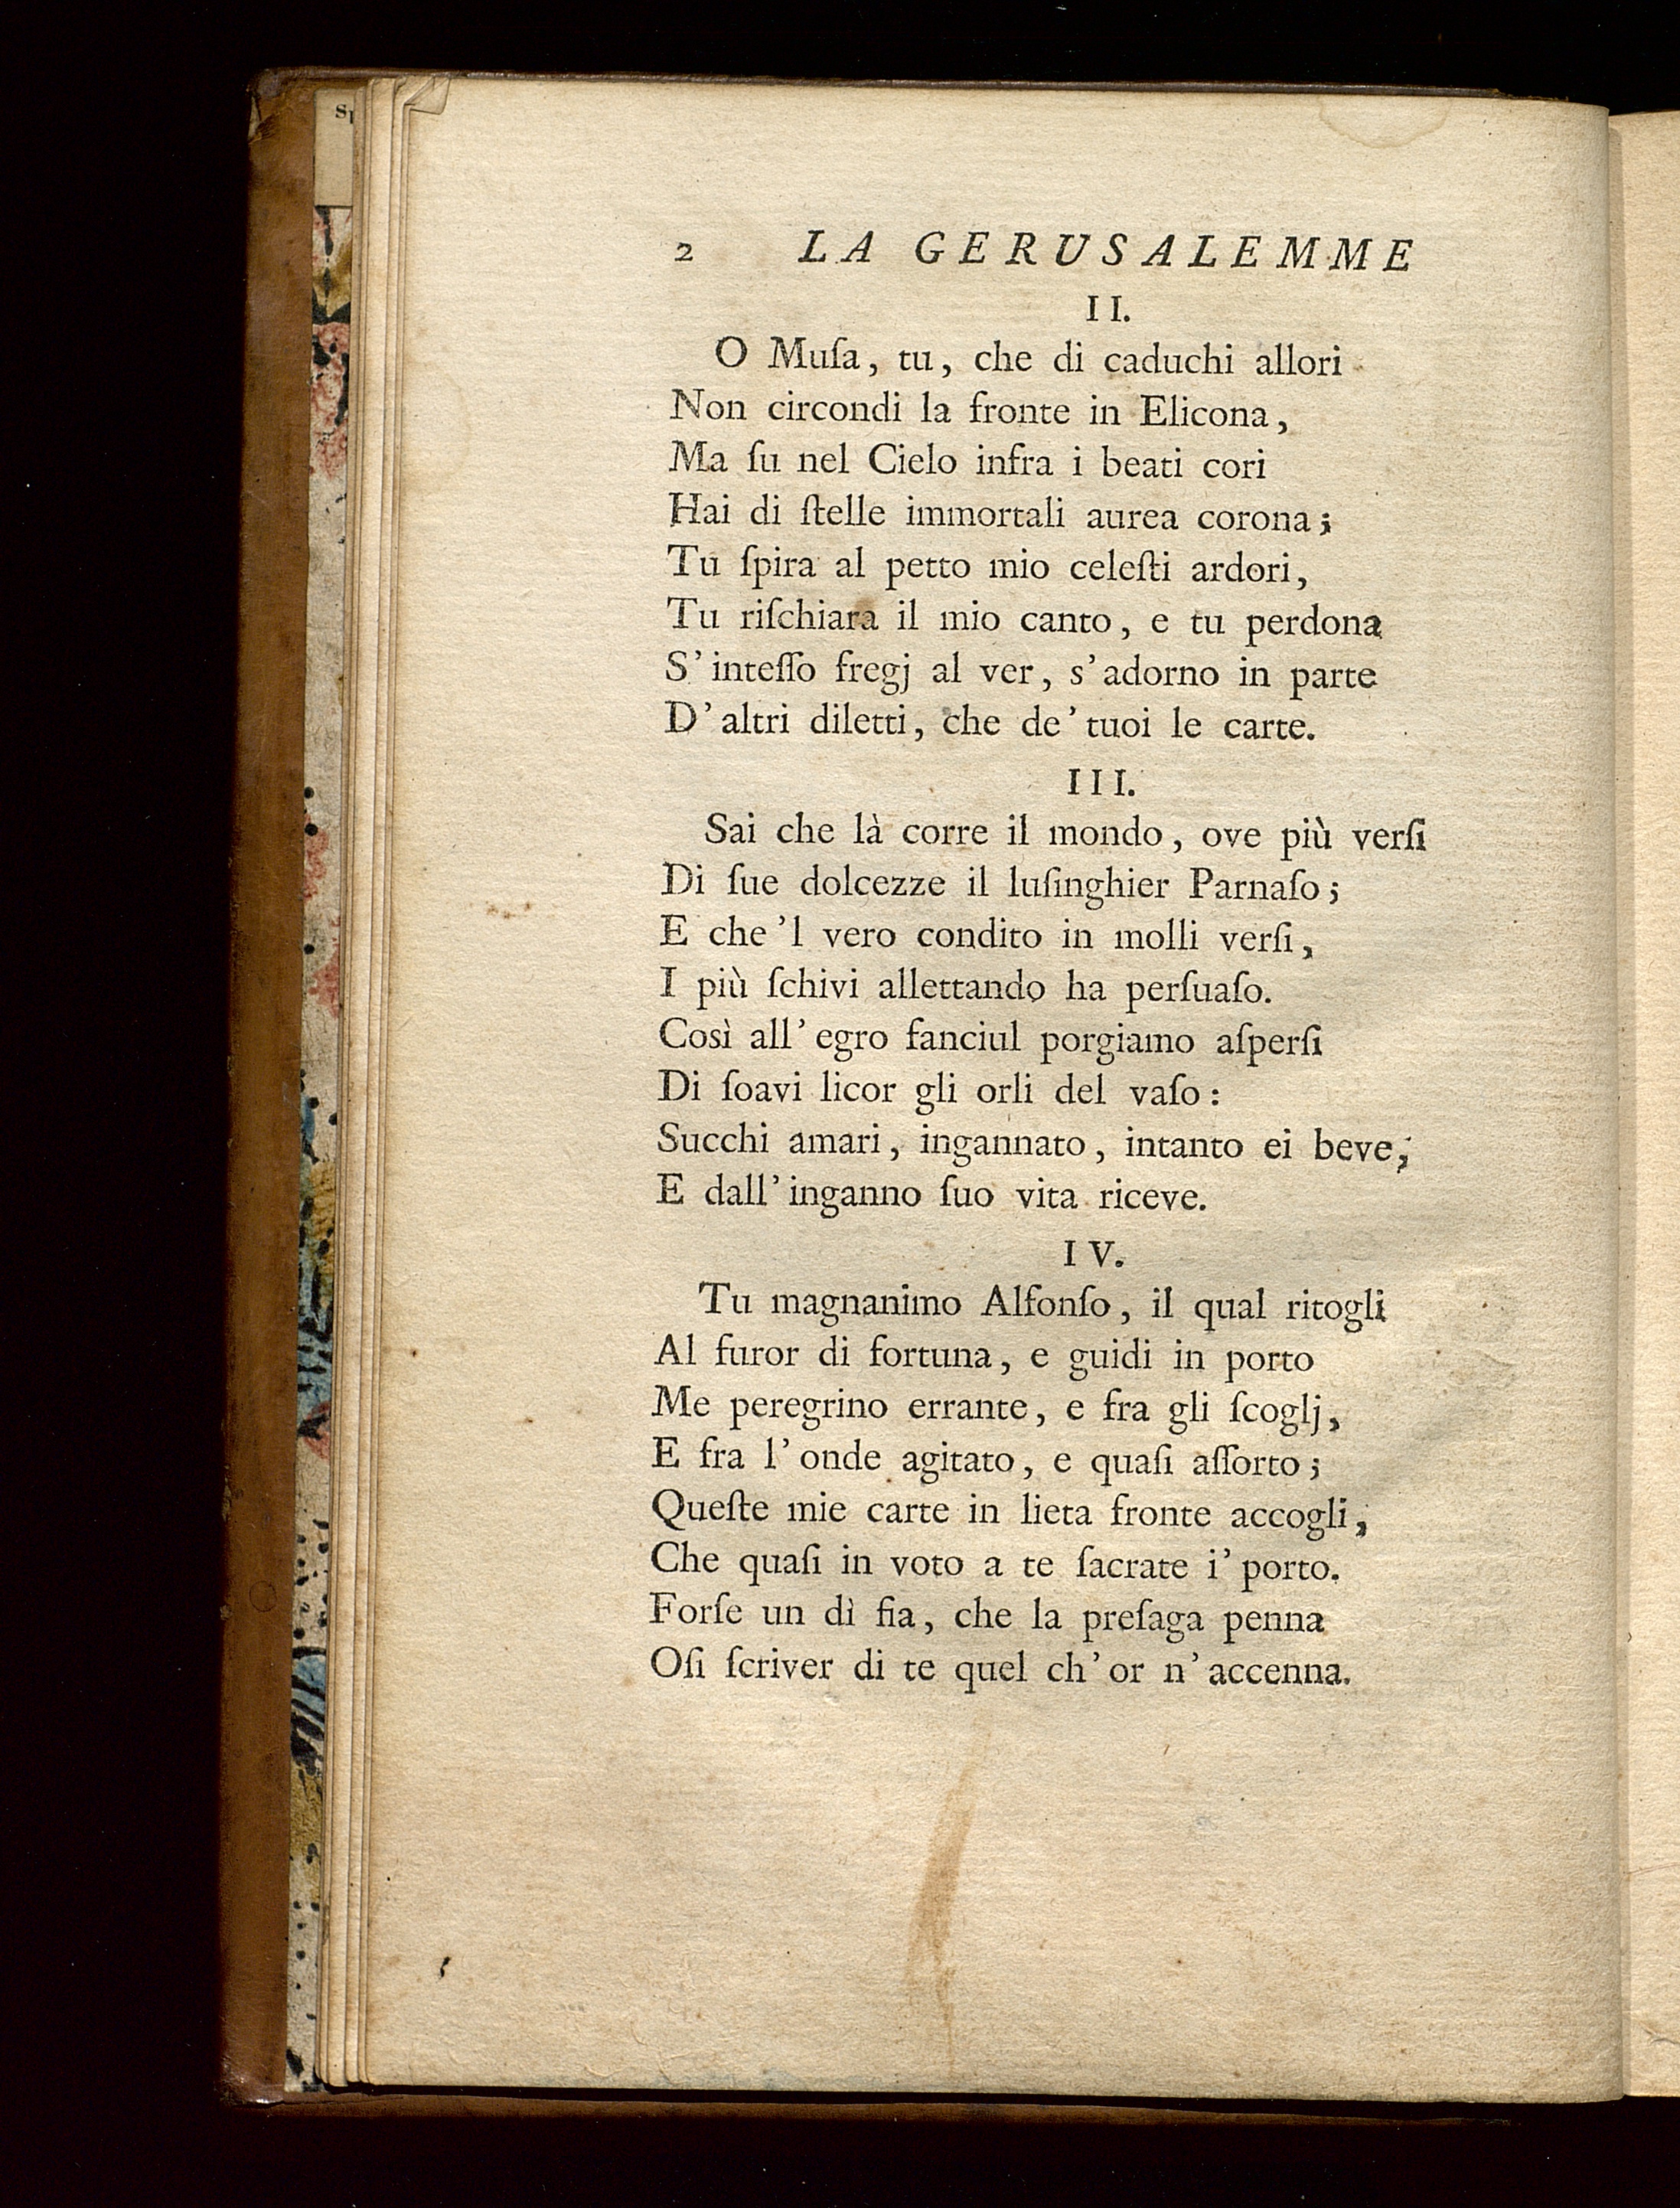 2 LA GERUSALEMME
II.
O Muſa, tu, che di caduchi allori
Non circondi la fronte in Elicona,
Ma ſu nel Cielo infra i beati cori
Hai di ſtelle immortali aurea corona;
Tu ſpira al petto mio celeſti ardori,
Tu riſchiara il mio canto, e tu perdona
S'inteſſo fregj al ver, s'adorno in parte
D'altri diletti, che de' tuoi le carte.
III.
Sai che là corre il mondo, ove più verſi
Di ſue dolcezze il luſinghier Parnaſo;
E che 'l vero condito in molli verſi,
I più ſchivi allettando ha perſuaſo.
Così all' egro fanciul porgiamo aſperſi
Di ſoavi licor gli orli del vaſo:
Succhi amari, ingannato, intanto ei beve,
E dall' inganno ſuo vita riceve.
IV.
Tu magnanimo Alfonſo, il qual ritogli
Al furor di fortuna, e guidi in porto
Me peregrino errante, e fra gli ſcoglj,
E fra l' onde agitato, e quaſi aſſorto;
Queſte mie carte in lieta fronte accogli,
Che quaſi in voto a te ſacrate i' porto.
Forſe un dì fia, che la preſaga penna
Oſi ſcriver di te quel ch' or n' accenna.